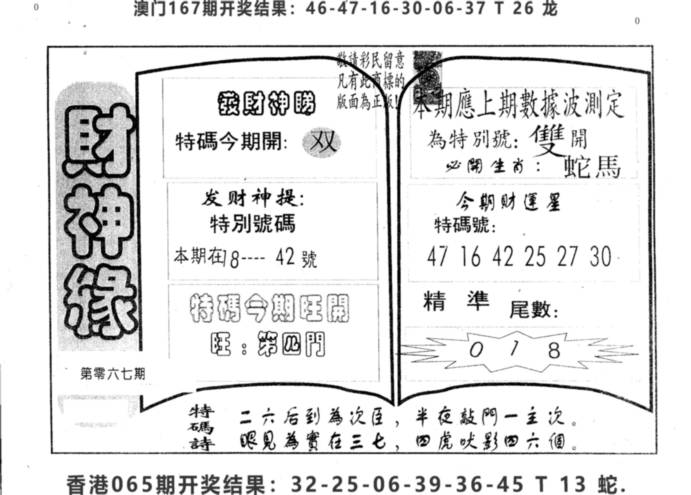 澳门167期开奖结果：46-47-16-30-06-37 T 26 龙
0
0
敬請彩民留意
凡有此商標的
版面為正版!
財神緣
第零六七期
發財神睇
特碼今期開: 双
发财神提:
特別號碼
本期在18---- 42號
特碼今期旺開
旺:第四門
本期應上期數據波測定
為特別號: 雙 開
必開生肖: 蛇馬
今期財運星
特碼號:
47 16 42 25 27 30
精 準 尾數:
0 1 8
特碼詩
二六后到為次臣，半夜敲門一主次。
眼見為實在三七，四虎吠影四六個。
香港065期开奖结果：32-25-06-39-36-45 T 13 蛇.